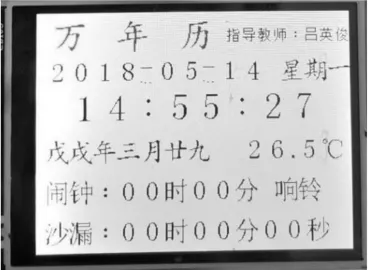 万年历 指导教师：吕英俊
2018-05-14 星期一
14:55:27
戊戌年三月廿九 26.5℃
闹钟：00时00分 响铃
沙漏：00时00分00秒